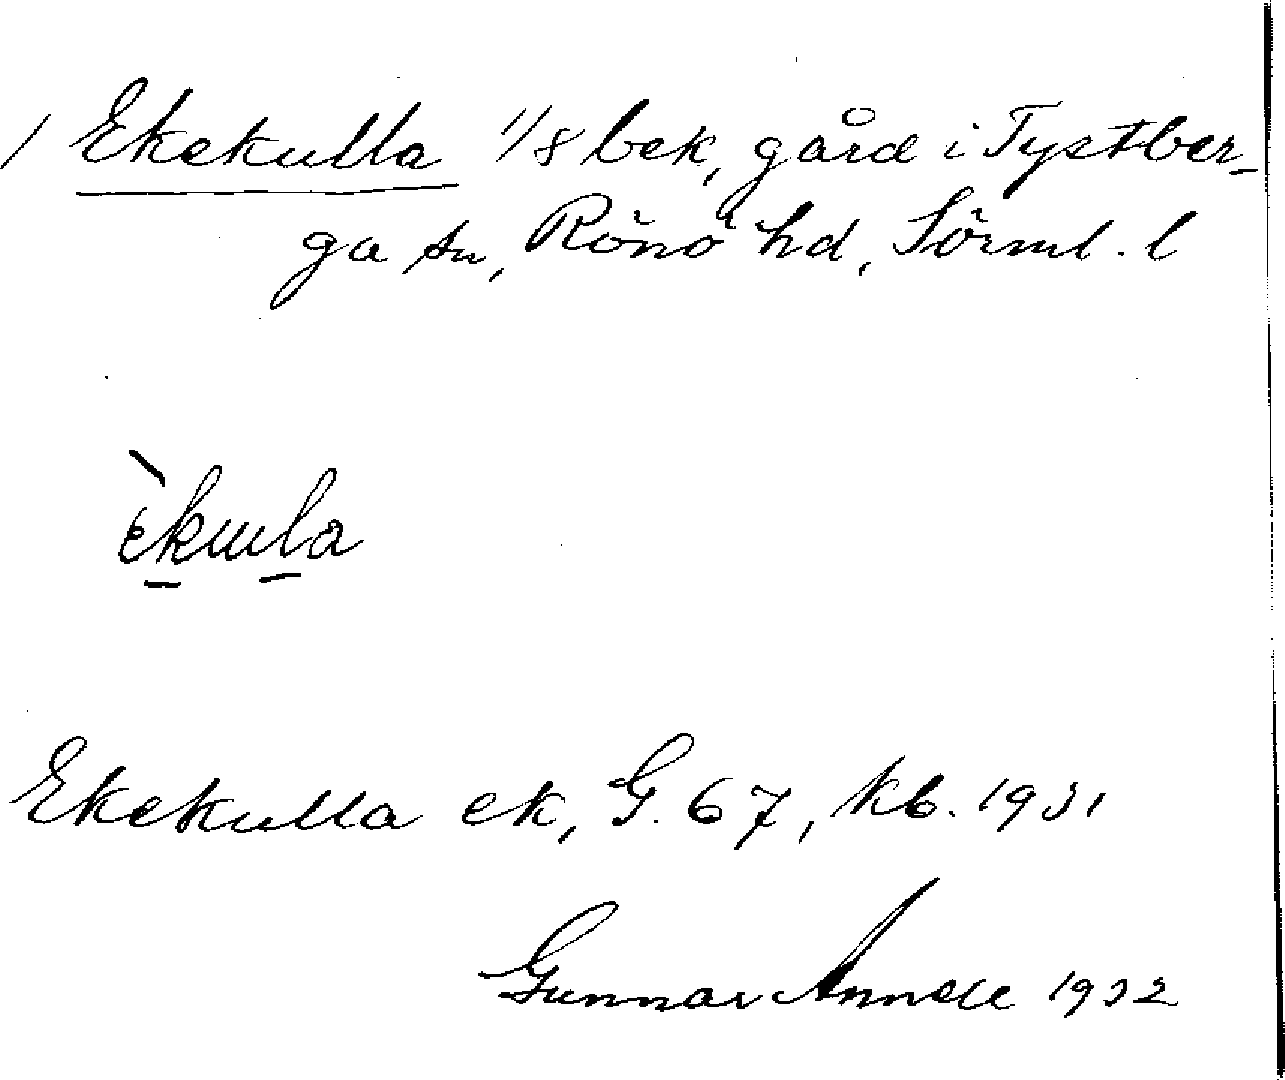 / Ekekulla 1/8 bek, gård i Tystber-
ga sn, Rönö hd, Sörml. l
Ekekulla ek, G. 67, kb. 1931
Gunnar Annell 1932